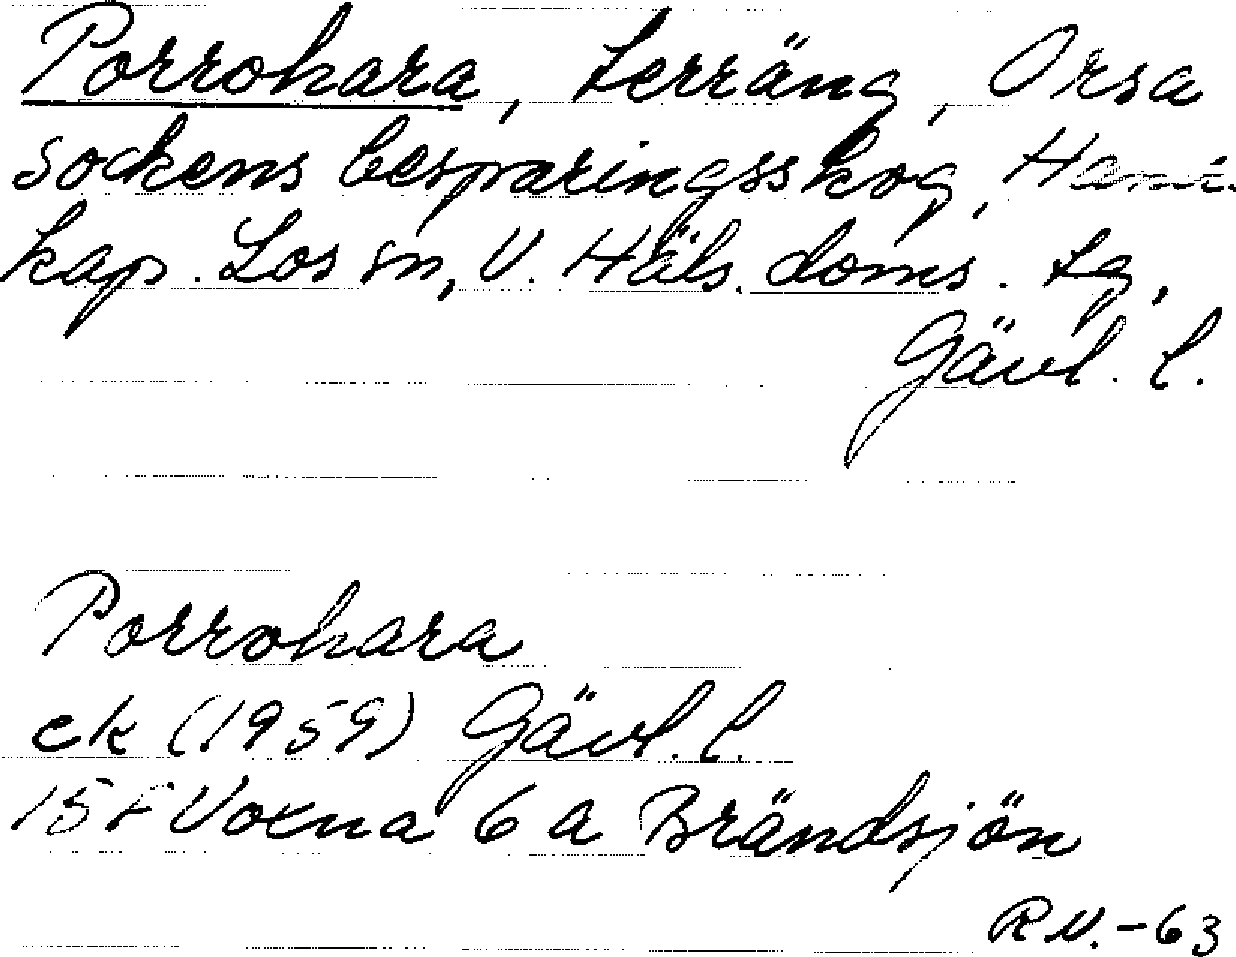 Porrohara, terräng, Orsa
sockens besparingsskog, Hamra
kap. Los sn, V. Häls. doms. tg,
Gävl. l.
Porrohara
ek (1959) Gävl. l.
15 F Voxna 6 a Brändsjön
R.N. -63